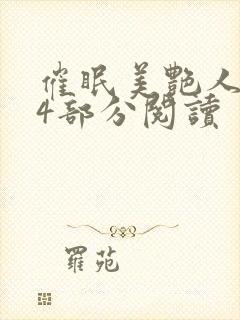 催眠美艷人
4部分閱讀
羅苑